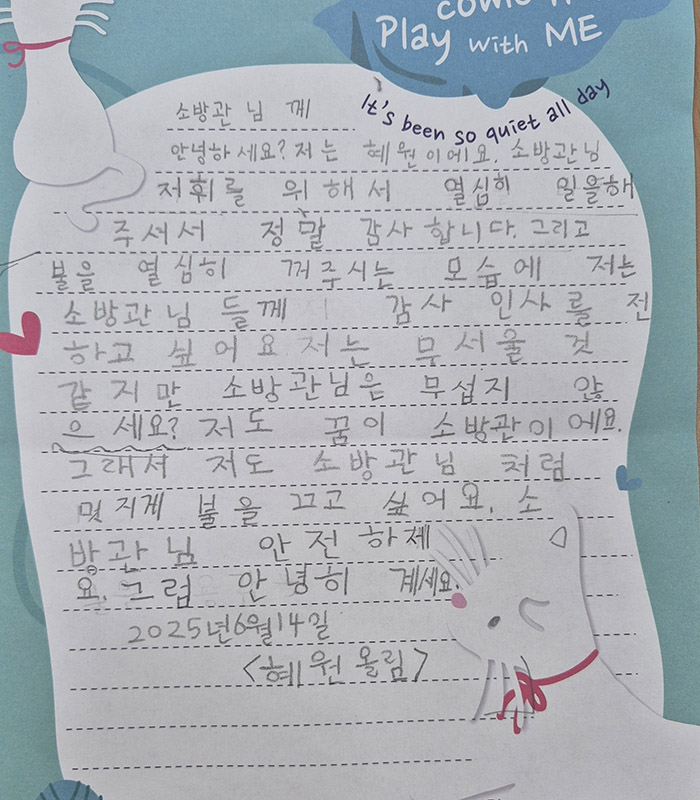 COME
Play with ME
It's been so quiet all day
소방관 님 께
안녕하세요? 저는 혜원이에요. 소방관님
저휘를 위해서 열심히 일을해
주셔서 정말 감사합니다. 그리고
불을 열심히 꺼주시는 모습에 저는
소방관님 들께 감사 인사를 전
하고 싶어요 저는 무서울 것
같지만 소방관님은 무섭지 않
으세요? 저도 꿈이 소방관이에요.
그래서 저도 소방관님 처럼
멋지게 불을 끄고 싶어요. 소
방관님 안전하제
요. 그럼 안녕히 계세요.
2025년6월14일
<혜원올림>